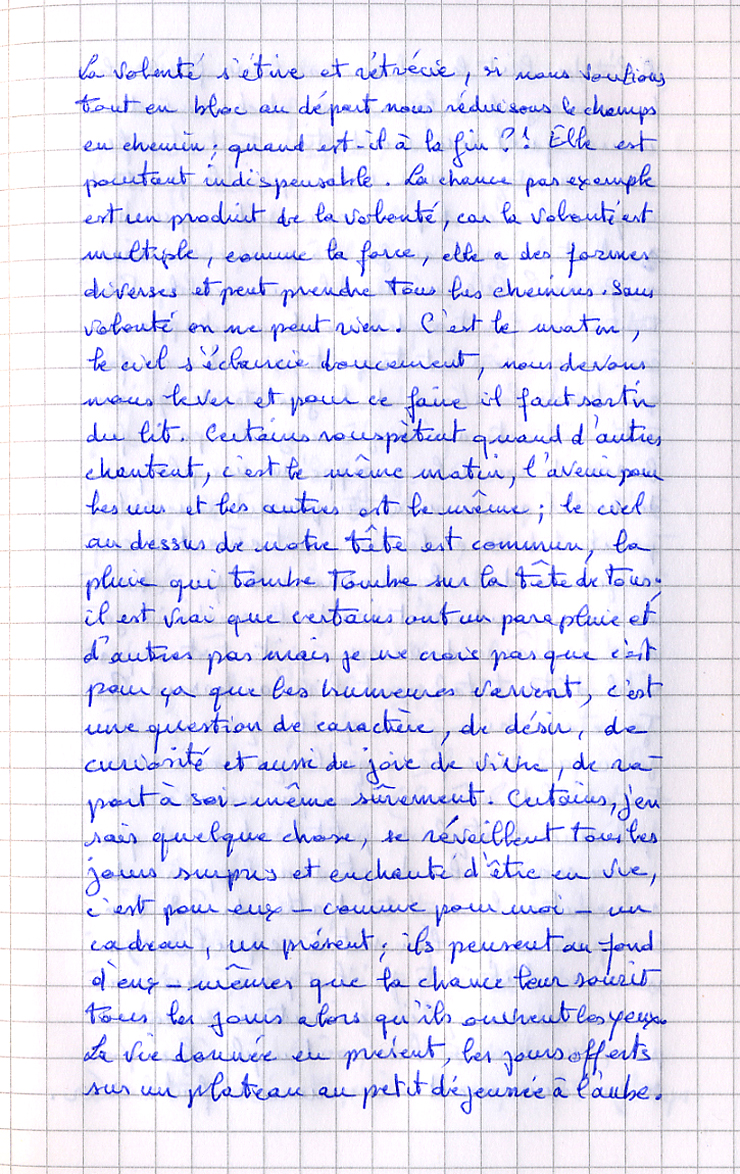 La volonté s'étire et rétrécie, si nous voulions
tout en bloc au départ nous réduisons le champs
en chemin ; quand est-il à la fin ?! Elle est
pourtant indispensable. La chance par exemple
est un produit de la volonté, car la volonté est
multiple, comme la force, elle a des formes
diverses et peut prendre tous les chemins. Sans
volonté on ne peut rien. C'est le matin,
le ciel s'éclaircie doucement, nous devons
nous lever et pour ce faire il faut sortir
du lit. Certains rouspètent quand d'autres
chantent, c'est le même matin, l'avenir pour
les uns et les autres est le même ; le ciel
au dessus de notre tête est commun, la
pluie qui tombe tombe sur la tête de tous ;
il est vrai que certains ont un parapluie et
d'autres pas mais je ne crois pas que c'est
pour ça que les humeures varient, c'est
une question de caractère, de désir, de
curiosité et aussi de joie de vivre, de ra-
port à soi-même sûrement. Certains, j'en
sais quelque chose, se réveillent tous les
jours surpris et enchanté d'être en vie,
c'est pour eux – comme pour moi – un
cadeau, un présent ; ils pensent au fond
d'eux-mêmes que la chance leur sourit
tous les jours alors qu'ils ouvrent les yeux.
La vie donnée en présent, les jours offerts
sur un plateau au petit déjeunée à l'aube.